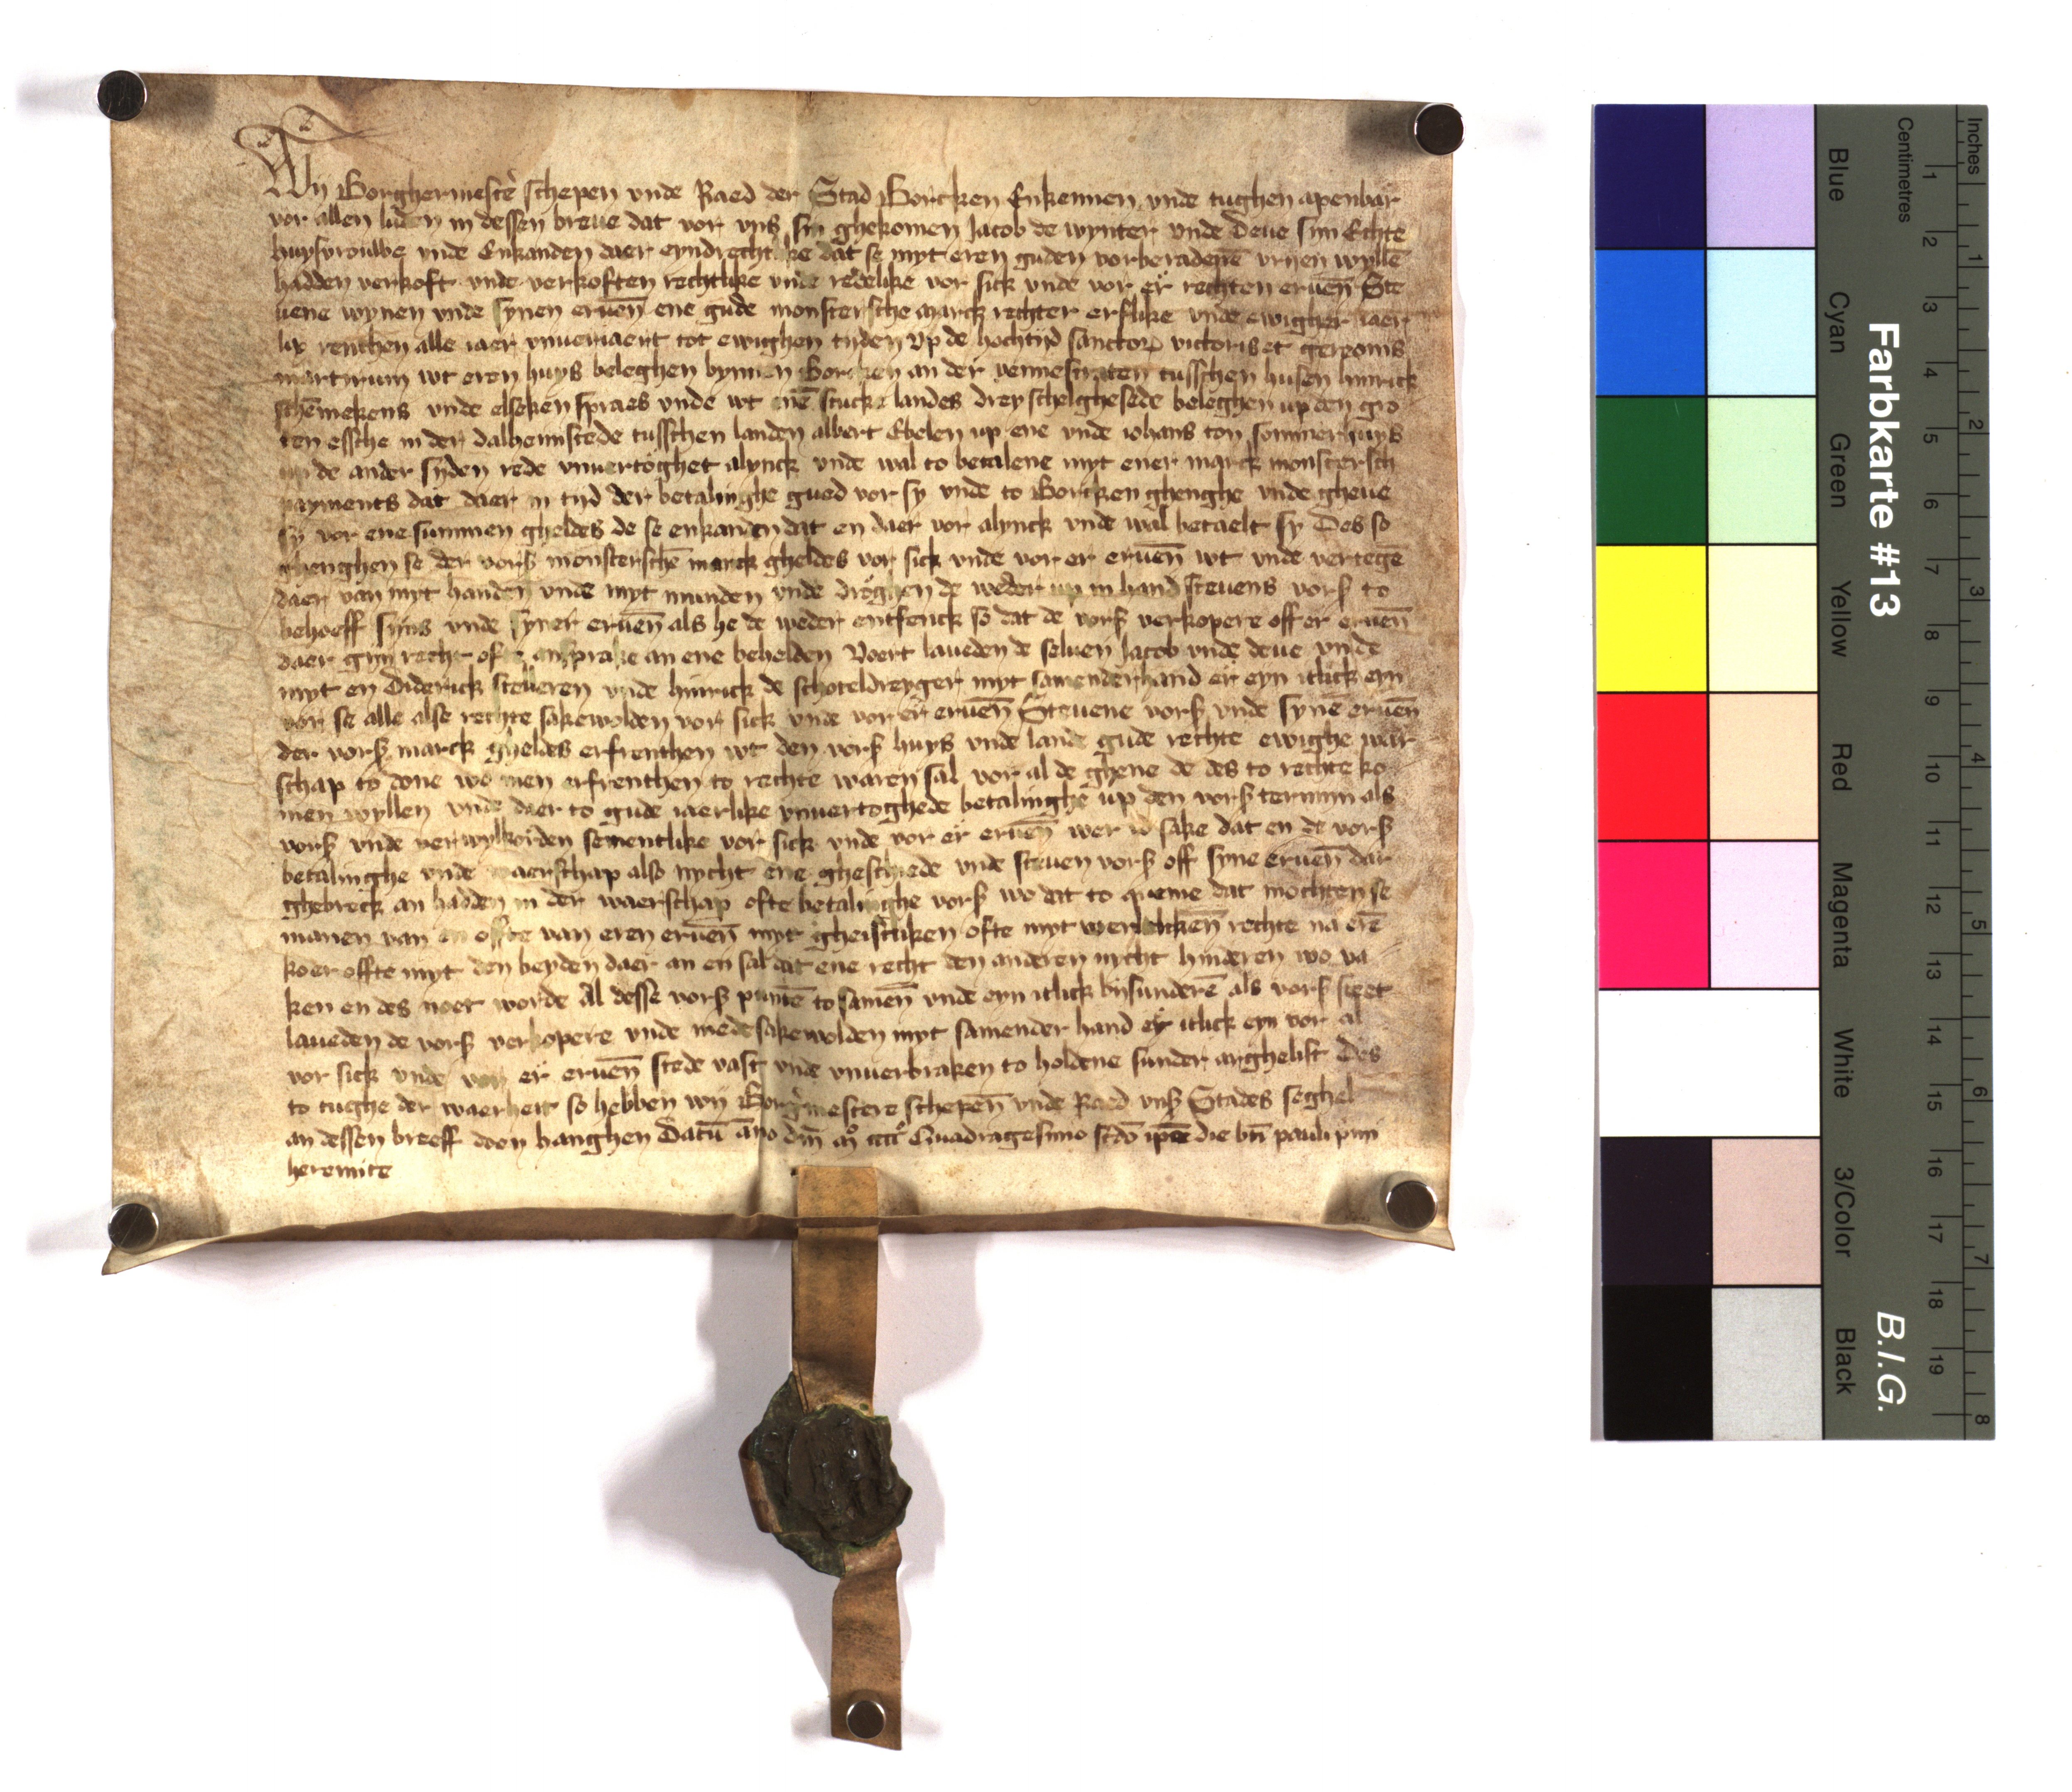 Wy Borghermestē schepen vnde Raed der Stad Borcken Enkennen vnde tughen apenbar
vor allen luden in dessen breue dat vor vns sin ghekomen Jacob de wynter vnde Deue sin Echte
huysvrouwe vnde Enkanden daer eyndrechtlike dat se myt eren guden vorberadenē vryen wyllē
hadden verkoft vnde verkoften rechtlike vnde redelike vor sick vnde vor er rechten eruēn Ste
uene wynen vnde synen eruēn ene gude monstersche marck rechter erflike vnde ewigher iaer
lix renthen alle iaer vnueriaert tot ewighen tyden Vp de hochtijd sanctor victoris et gereonis
martirum wt eren huys beleghen bynnen Borcken an der vennestraten tusschen husen hinrick
schemekens vnde elseken spraes vnde wt enē stucke landes drey schelghesede beleghen up den gro
ten essche in der dalhemstede tusschen landen albert Ebelen up ene vnde iohans ton sommerhuys
up de ander syden rede vnuertoghet alynck vnde wal to betalene myt ener marck monstersch
payments dat daer in tijd der betalinghe gued vor sy vnde to Borcken ghenghe vnde gheue
sy vor ene summen gheldes de se enkanden dat en daer vor alynck vnde wal betaelt sy Des so
ghenghen se der vors monsterschē marck gheldes vor sick vnde vor er eruēn wt vnde vertegē
daer van myt handen vnde myt munden vnde droghen de weder up in hand steuens vors to
behoeff syns vnde syner eruēn als he de weder entfenck so dat de vors verkopere off er eruēn
daer gyn recht ofte ansprake an ene behelden Voert laueden de seluen Jacob vnde deue vnde
myt en Diderick steueren vnde hinrick de schoteldreyger myt samenderhand er eyn itlick eyn
vor se alle alse rechte sakewolden vor sick vnde vor er eruēn Steuene vors vnde synē eruēn
der vors marck gheldes erfrenthen wt den vors huys vnde lande gude rechte ewighe waer
schap to done wo men erfrenthen to rechte waren sal vor al de ghene de des to rechte ko
men wyllen vnde daer to gude iaerlike vnuertoghede betalinghe up den vors termin als
vors vnde verwylkorden sementlike vor sick vnde vor er eruēn wer id sake dat en de vors
betalinghe vnde waerschap also nycht ene gheschiede vnde steuen vors off syne eruēn dar
ghebreck an hadden in der waerschap ofte betalinghe vors wo dat to queme dat mochten se
manen van en offte van eren eruēn myt gheistliken ofte myt werltlikēn rechte na erē
koer offte myt den beyden daer an en sal dat ene recht den anderen nycht hinderen wo va
ken en des noet worde Al desse vors puntē to samēn vnde eyn itlick bysunderē als vors steet
laueden de vors verkopere vnde medesakewolden myt samender hand er itlick eyn vor al
vor sick vnde vor er eruēn stede vast vnde vnuerbraken to holdene sunder arghelist Des
to tughe der waerheit so hebben wij Borgermestere schepēn vnde Raed vns Stades seghel
an dessen breeff doen hanghen Datū āno dm̄ mº ccccº Quadragesimo scdo ipso die bti pauli pimi
heremite
Inches
Centimetres
1 2 3 4 5 6 7 8 9 10 11 12 13 14 15 16 17 18 19
1 2 3 4 5 6 7 8
Blue Cyan Green Yellow Red Magenta White 3/Color Black
Farbkarte #13
B.I.G.